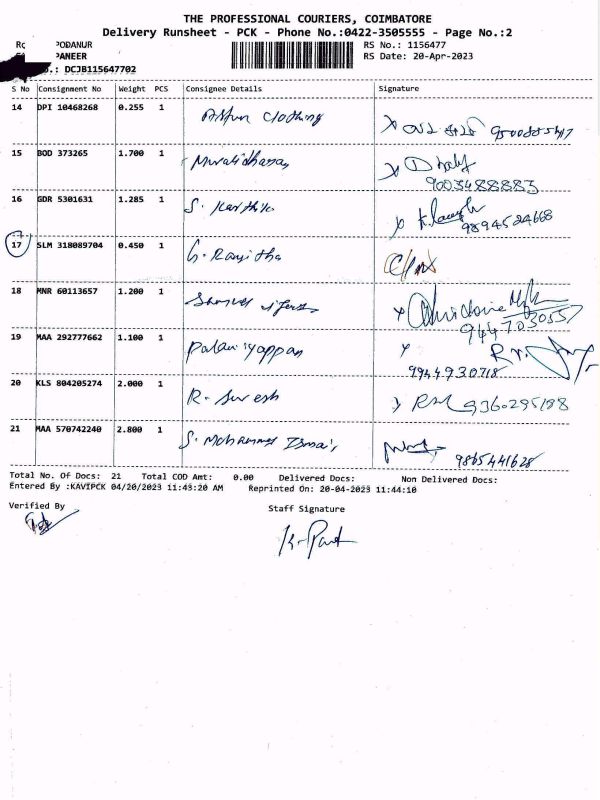 THE PROFESSIONAL COURIERS, COIMBATORE
Delivery Runsheet - PCK - Phone No.:0422-3505555 - Page No.:2
PODANUR RS No.: 1156477
PANEER RS Date: 20-Apr-2023
.: DCJB115647702
S No Consignment No Weight PCS Consignee Details Signature
14 DPI 10468268 0.255 1 Clothing
15 BOD 373265 1.700 1 Muralidharan
9003488883
16 GDR 5301631 1.285 1 S. Karthik
9894524668
17 SLM 318089704 0.450 1 G. Ranjitha
18 MNR 60113657 1.200 1
9447030557
19 MAA 292777662 1.100 1 Palaniyappan
9944930718
20 KLS 804205274 2.000 1 R. Suresh 9360295188
21 MAA 570742240 2.800 1 S. Mohammed Ismail 9865441628
Total No. Of Docs: 21 Total COD Amt: 0.00 Delivered Docs: Non Delivered Docs:
Entered By :KAVIPCK 04/20/2023 11:43:20 AM Reprinted On: 20-04-2023 11:44:10
Verified By Staff Signature